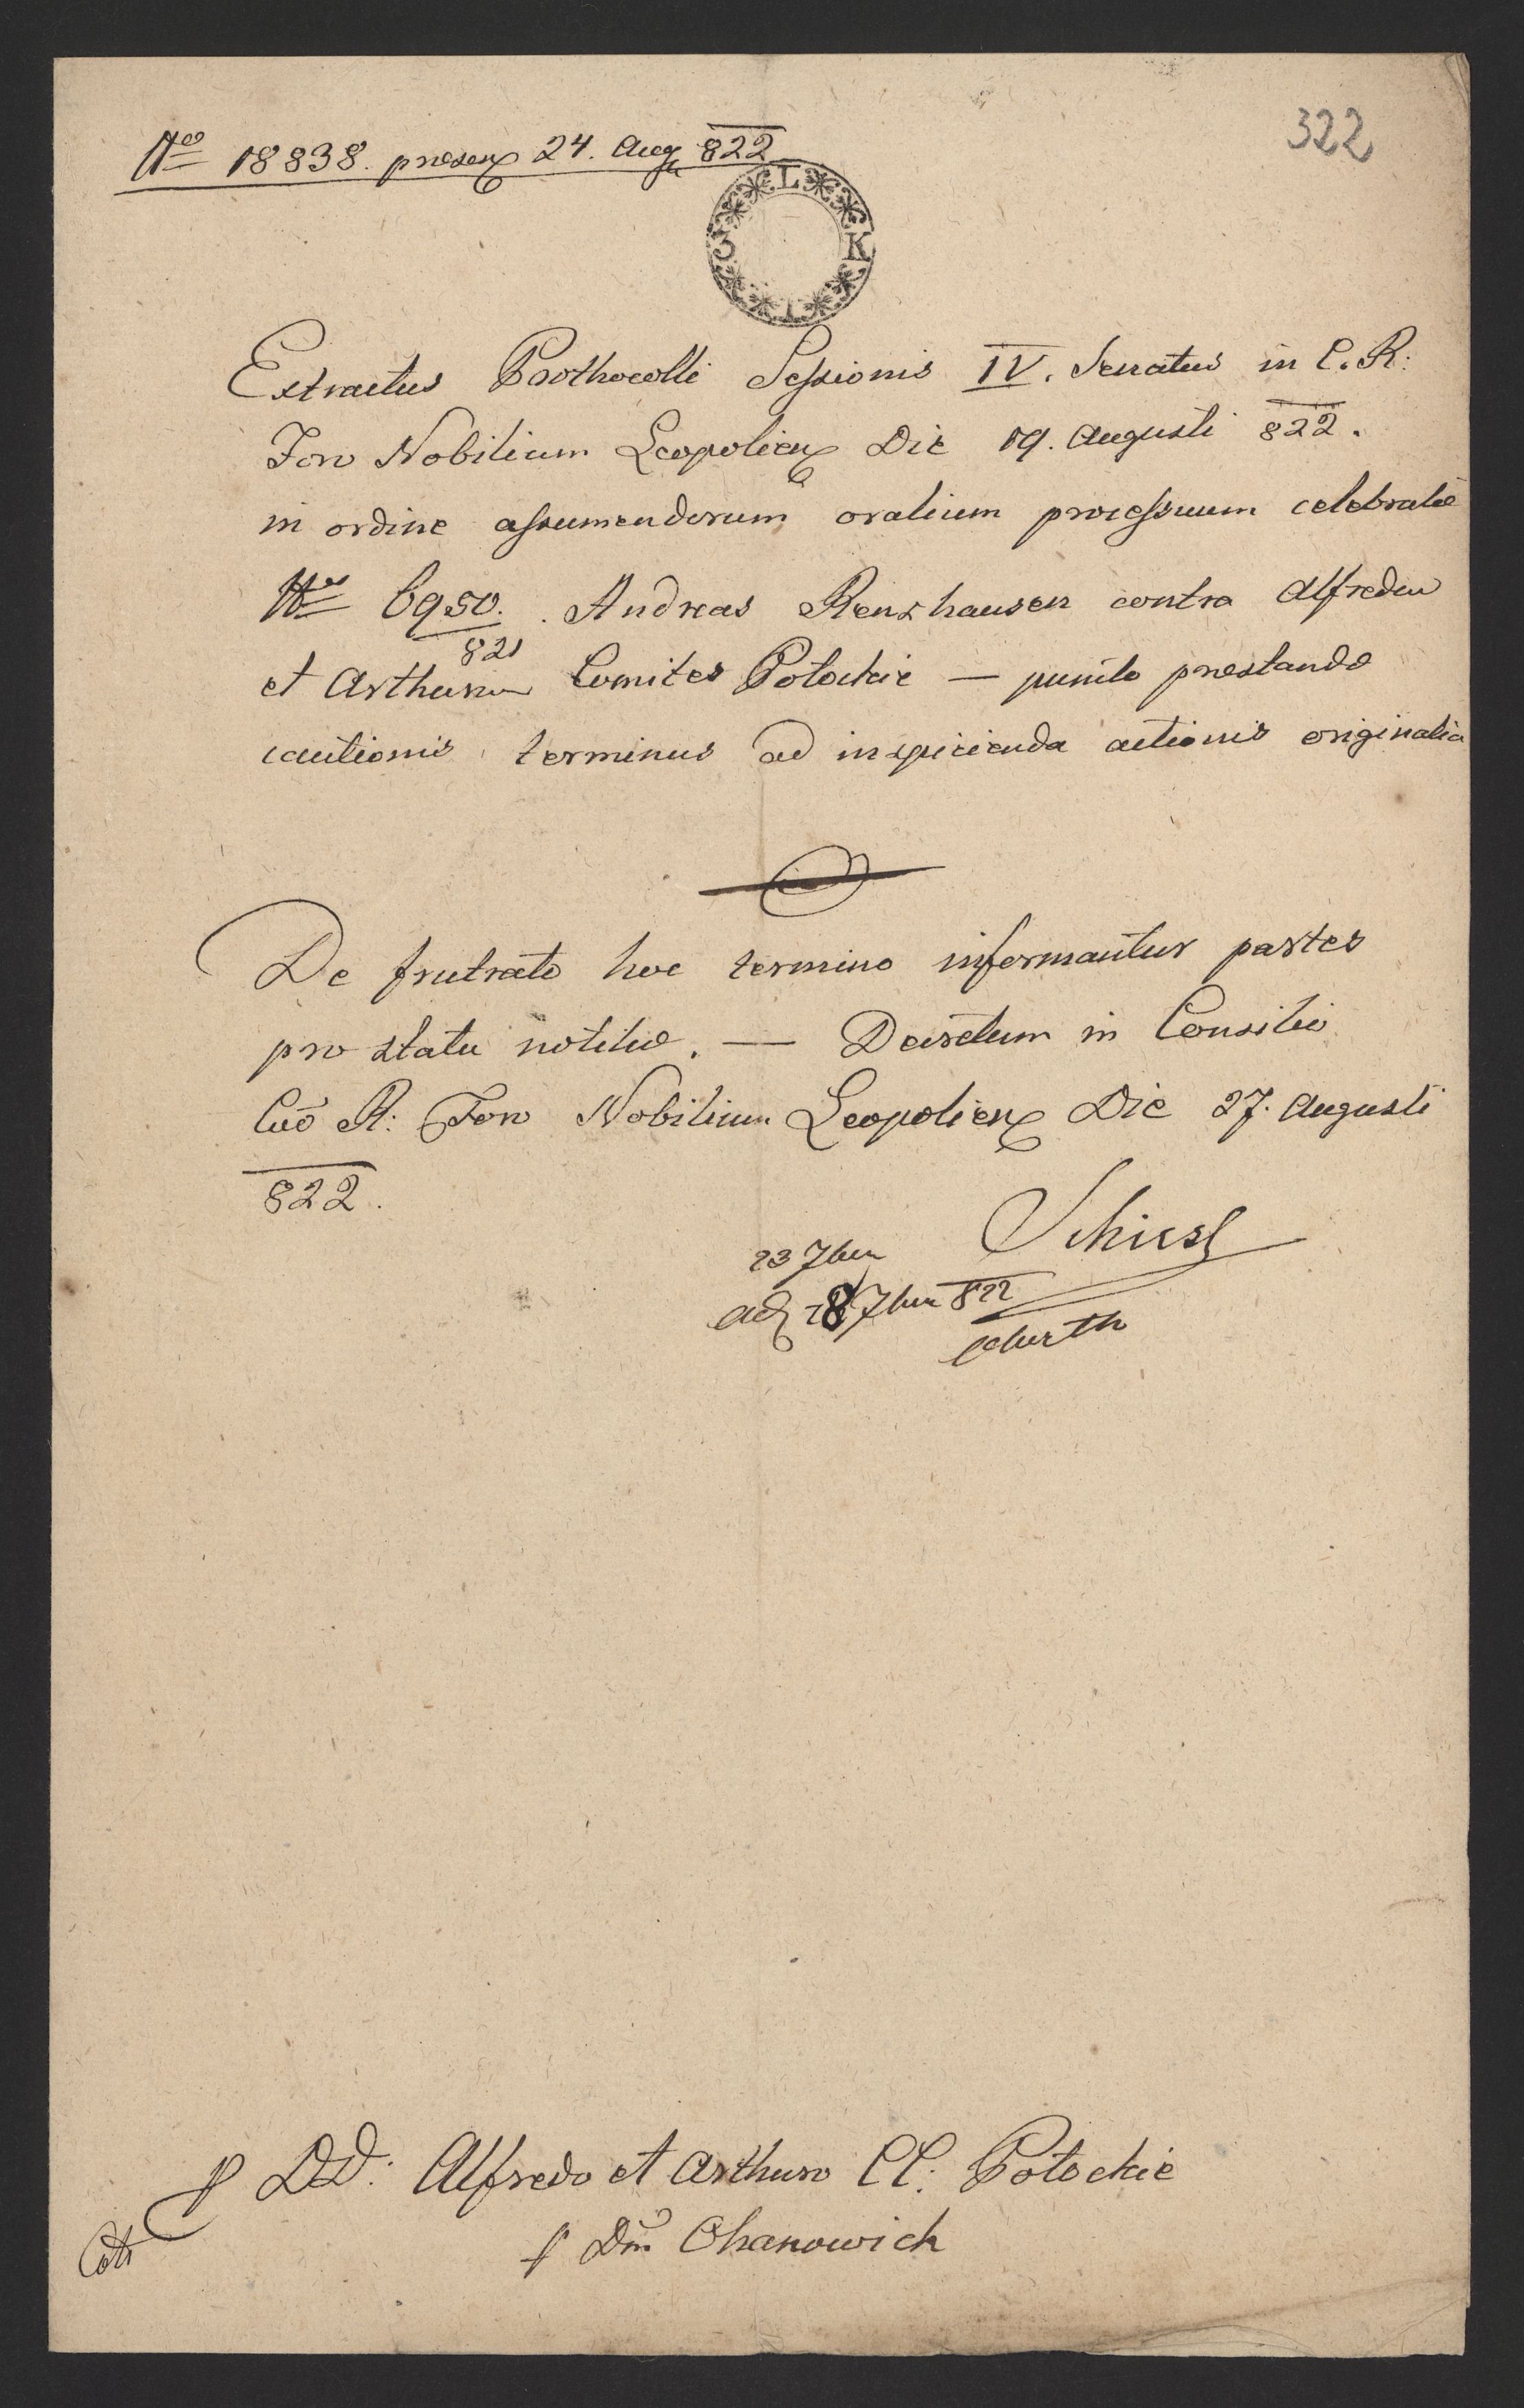 322
Nro 18838. praesen 24. Aug 822
L
3 K
Extractus Prothocolli Sessionis IV. Senatus in C. R:
Foro Nobilium Leopolien Die 19. Augusti 822.
in ordine assumendorum oralium processuum celebratae
Nro 6950. Andreas Renxhausen contra Alfredum
821
et Arthurum Comites Potockie — puncto praestandae
cautionis terminus ad inspicienda actionis originalia
De frutrato hoc termino informantur partes
pro statu notitiae. — Decretum in Consilio
Cæo R: Foro Nobilium Leopolien Die 27. Augusti
822.
Schiesl
23 7bra
ad 28 7bra 822
p DD: Alfredo et Arthuro CC: Potockie
p Dm Ohanowich